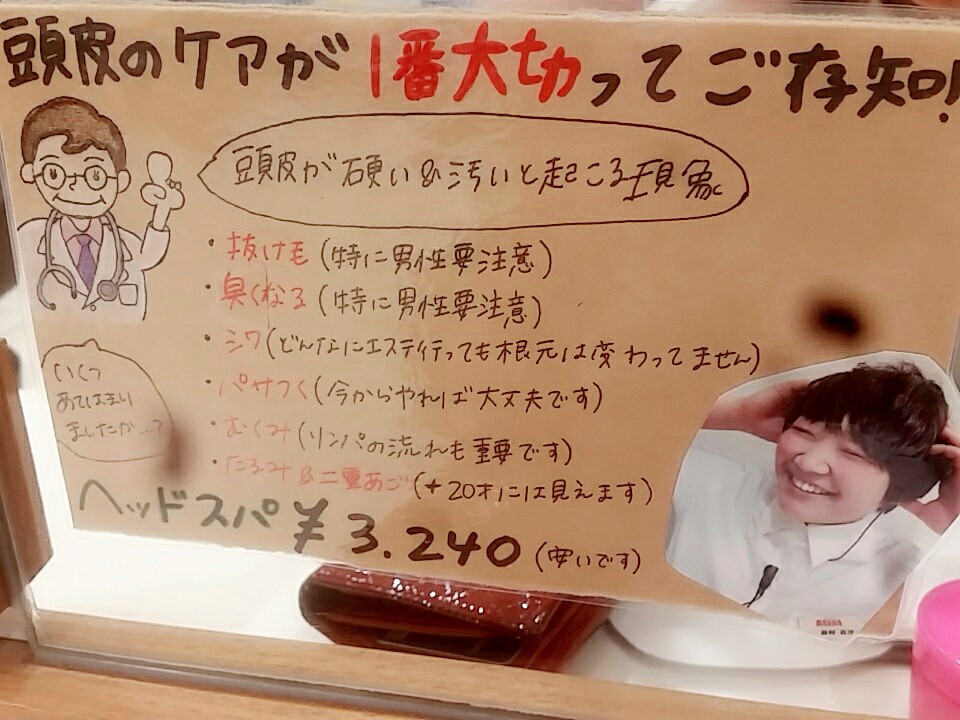 頭皮のケアが1番大切ってご存知!
頭皮が硬い&汚いと起こる現象
・抜け毛(特に男性要注意)
・臭くなる(特に男性要注意)
・シワ(どんなにエステ行っても根元は変わってません)
・パサつく(今からやれば大丈夫です)
・むくみ(リンパの流れも重要です)
・たるみ&二重あご(+20才には見えます)
いくつ
あてはまり
ましたか...?
ヘッドスパ ¥3.240(安いです)